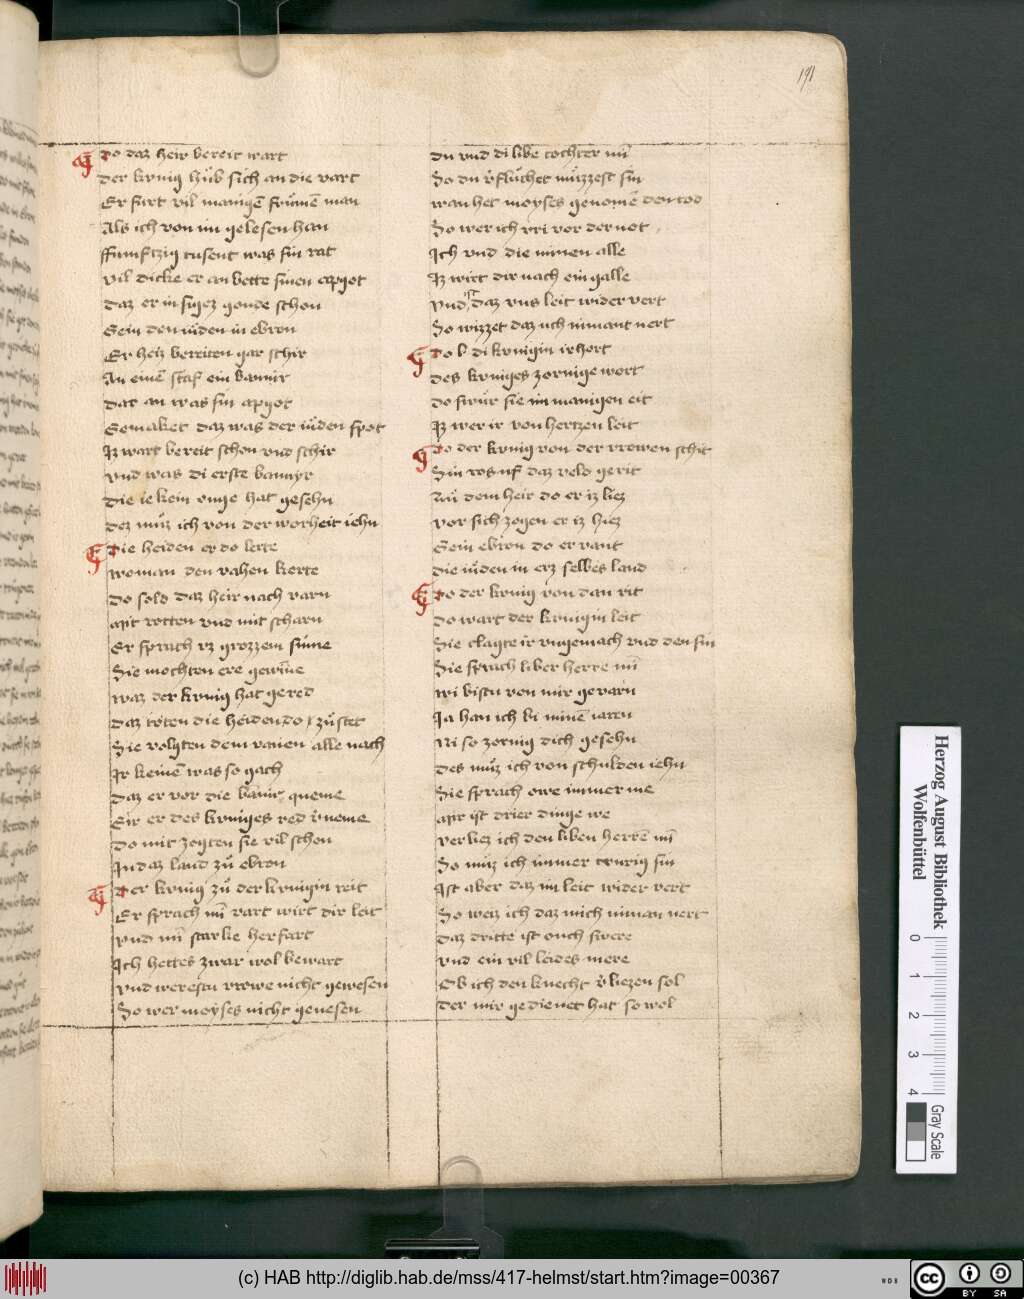 191
Do daz heir bereit wart
der kunig hůb sich an die vart
Er furt vil manigē frůmē man
Als ich von im gelesen han
ffumfczig tusent was sin rat
vil dicke er an bette sinen apgot
daz er in sigez gonde schon
Gein den iůden in ebron
Er heiz berriten gar schir
An einē staf ein banir
dar an was sin apgot
Gemaket daz was der iůden spot
Iz wart bereit schon vnd schir
vnd was di erste banyr
die ie kein ouge hat gesehn
dez můz ich von der worheit iehn
Die heiden er do lerte
woman den vahen kerte
do sold daz heir nach varn
Mit rotten vnd mit scharn
Er sprach vz grozzem sinne
Sie mochten ere gewīne
waz der kunig hat gered
daz toten die heiden do zůstet
Sie volgten dem vanen alle nach
Ir keinē was so gach
daz er vor die banir queme
Eir er des kuniges red v̓neme
do mit zogten sie vil schon
In daz land zů ebron
Der kunig zů der kunigin reit
Er sprach mī vart wirt dir leit
vnd mī starke herfart
Ich hettes zwar wol bewart
vnd werestu vrowe nicht gewesen
So wer moyses nicht genesen
du vnd di libe tochter mī
So du v̓flůchet můzzest sin
wan het moyses genomē den tod
So wer ich vri vor der not
Ich vnd die minen alle
Iz wirt dir nach ein galle
vnd ist daz vns leit wider vert
So wizzet daz uch nimant nert
Do di kunigin irhort
des kuniges zornige wort
do swůr sie im manigen eit
Iz wer ir von hertzen leit
Do der kunig von der vrowen schit
Sin ros uf daz veld gerit
Zů dem heir do er iz liez
vor sich zogen er iz hiez
Gein ebron do er vant
die iůden in erz selbes land
Do der kunig von dan rit
do wart der kunigin leit
Sie clagte ir vngemach vnd den sin
Sie sprach liber herre mī
wi bistu von mir gevarn
Ja han ich bi minē iaren
Ni so zornig dich gesehn
des můz ich von schulden iehn
Sie sprach owe immer me
Mir ist drier dinge we
verliez ich den liben herrē mī
So můz ich immer trurig sin
Ist aber daz im leit wider vert
So weiz ich daz mich niman nert
daz dritte ist ouch swere
vnd ein vil leides mere
Ob ich den knecht v̓liezen sol
der mir gedienet hat so wol
Herzog August Bibliothek
Wolfenbüttel
0 1 2 3 4
Gray Scale
(c) HAB http://diglib.hab.de/mss/417-helmst/start.htm?image=00367
WDB
CC BY SA